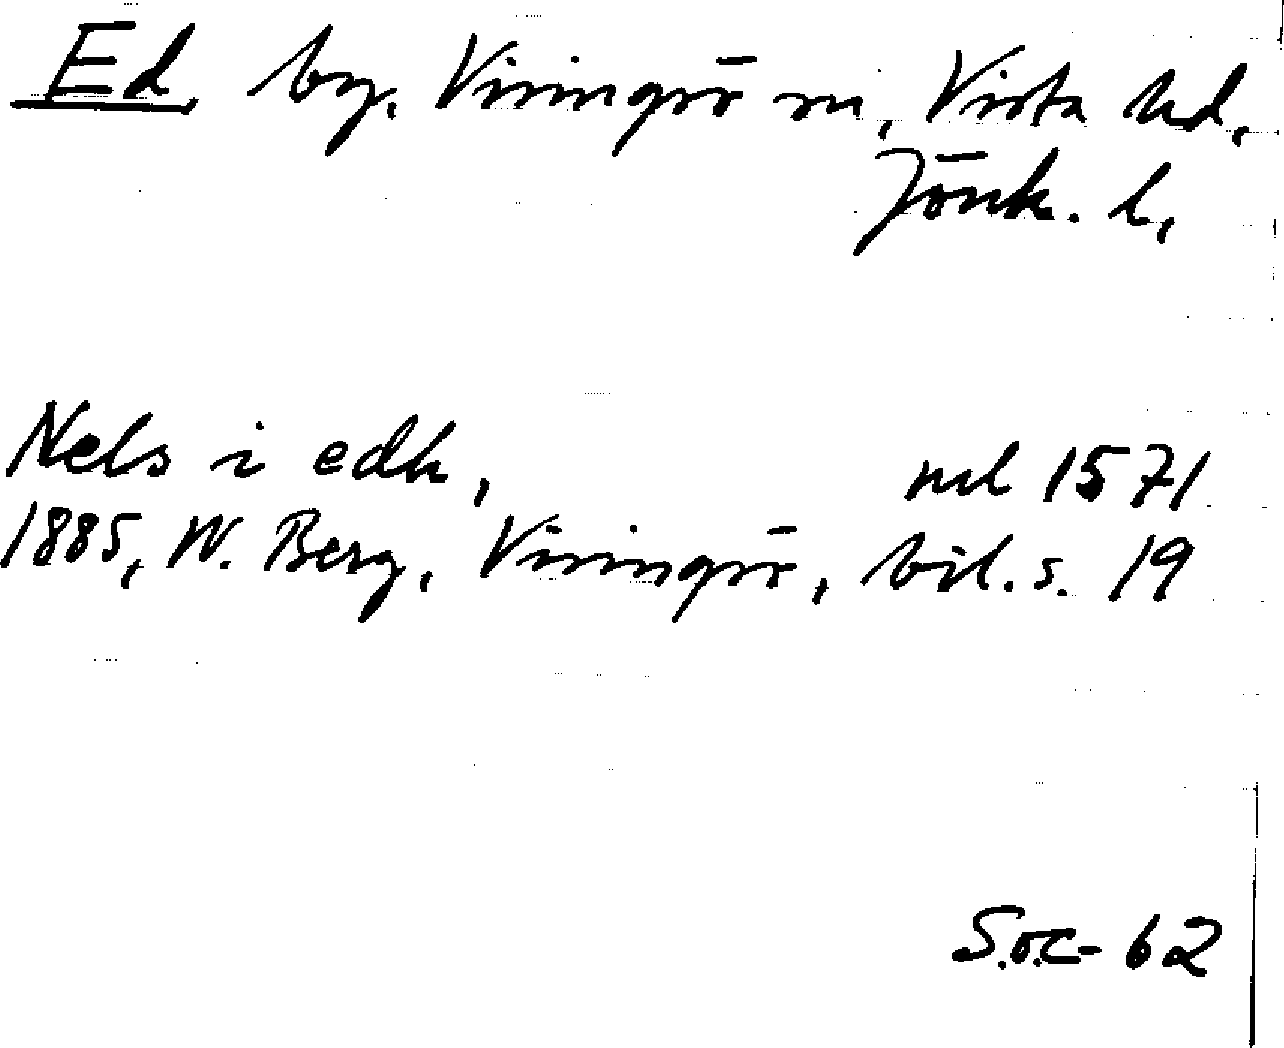 Ed, by. Visingsö sn, Vista hd,
Jönk. l,
Nels i edh, ml 1571
1885, W. Berg, Visingsö, bil. s. 19
S.o.C- 62